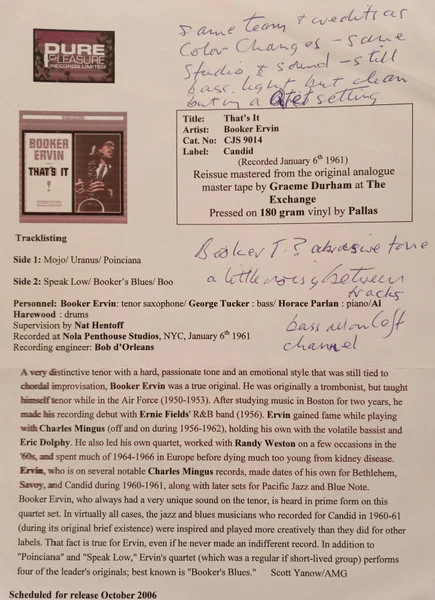 PURE
PLEASURE
RECORDS LIMITED
same team & credits as
Color Changes - same
studio & sound - still
bass light but clean
but in a 4tet setting
BOOKER
ERVIN
THAT'S IT
!
Title: That's It
Artist: Booker Ervin
Cat. No: CJS 9014
Label: Candid
(Recorded January 6th 1961)
Reissue mastered from the original analogue
master tape by Graeme Durham at The
Exchange
Pressed on 180 gram vinyl by Pallas
Tracklisting
Side 1: Mojo/ Uranus/ Poinciana
Side 2: Speak Low/ Booker's Blues/ Boo
Booker T.? abrasive tone
a little noisy between
tracks
bass is on left
channel
Personnel: Booker Ervin: tenor saxophone/ George Tucker : bass/ Horace Parlan : piano/Al
Harewood : drums
Supervision by Nat Hentoff
Recorded at Nola Penthouse Studios, NYC, January 6th 1961
Recording engineer: Bob d'Orleans
A very distinctive tenor with a hard, passionate tone and an emotional style that was still tied to
chordal improvisation, Booker Ervin was a true original. He was originally a trombonist, but taught
himself tenor while in the Air Force (1950-1953). After studying music in Boston for two years, he
made his recording debut with Ernie Fields' R&B band (1956). Ervin gained fame while playing
with Charles Mingus (off and on during 1956-1962), holding his own with the volatile bassist and
Eric Dolphy. He also led his own quartet, worked with Randy Weston on a few occasions in the
'60s, and spent much of 1964-1966 in Europe before dying much too young from kidney disease.
Ervin, who is on several notable Charles Mingus records, made dates of his own for Bethlehem,
Savoy, and Candid during 1960-1961, along with later sets for Pacific Jazz and Blue Note.
Booker Ervin, who always had a very unique sound on the tenor, is heard in prime form on this
quartet set. In virtually all cases, the jazz and blues musicians who recorded for Candid in 1960-61
(during its original brief existence) were inspired and played more creatively than they did for other
labels. That fact is true for Ervin, even if he never made an indifferent record. In addition to
"Poinciana" and "Speak Low," Ervin's quartet (which was a regular if short-lived group) performs
four of the leader's originals; best known is "Booker's Blues." Scott Yanow/AMG
Scheduled for release October 2006